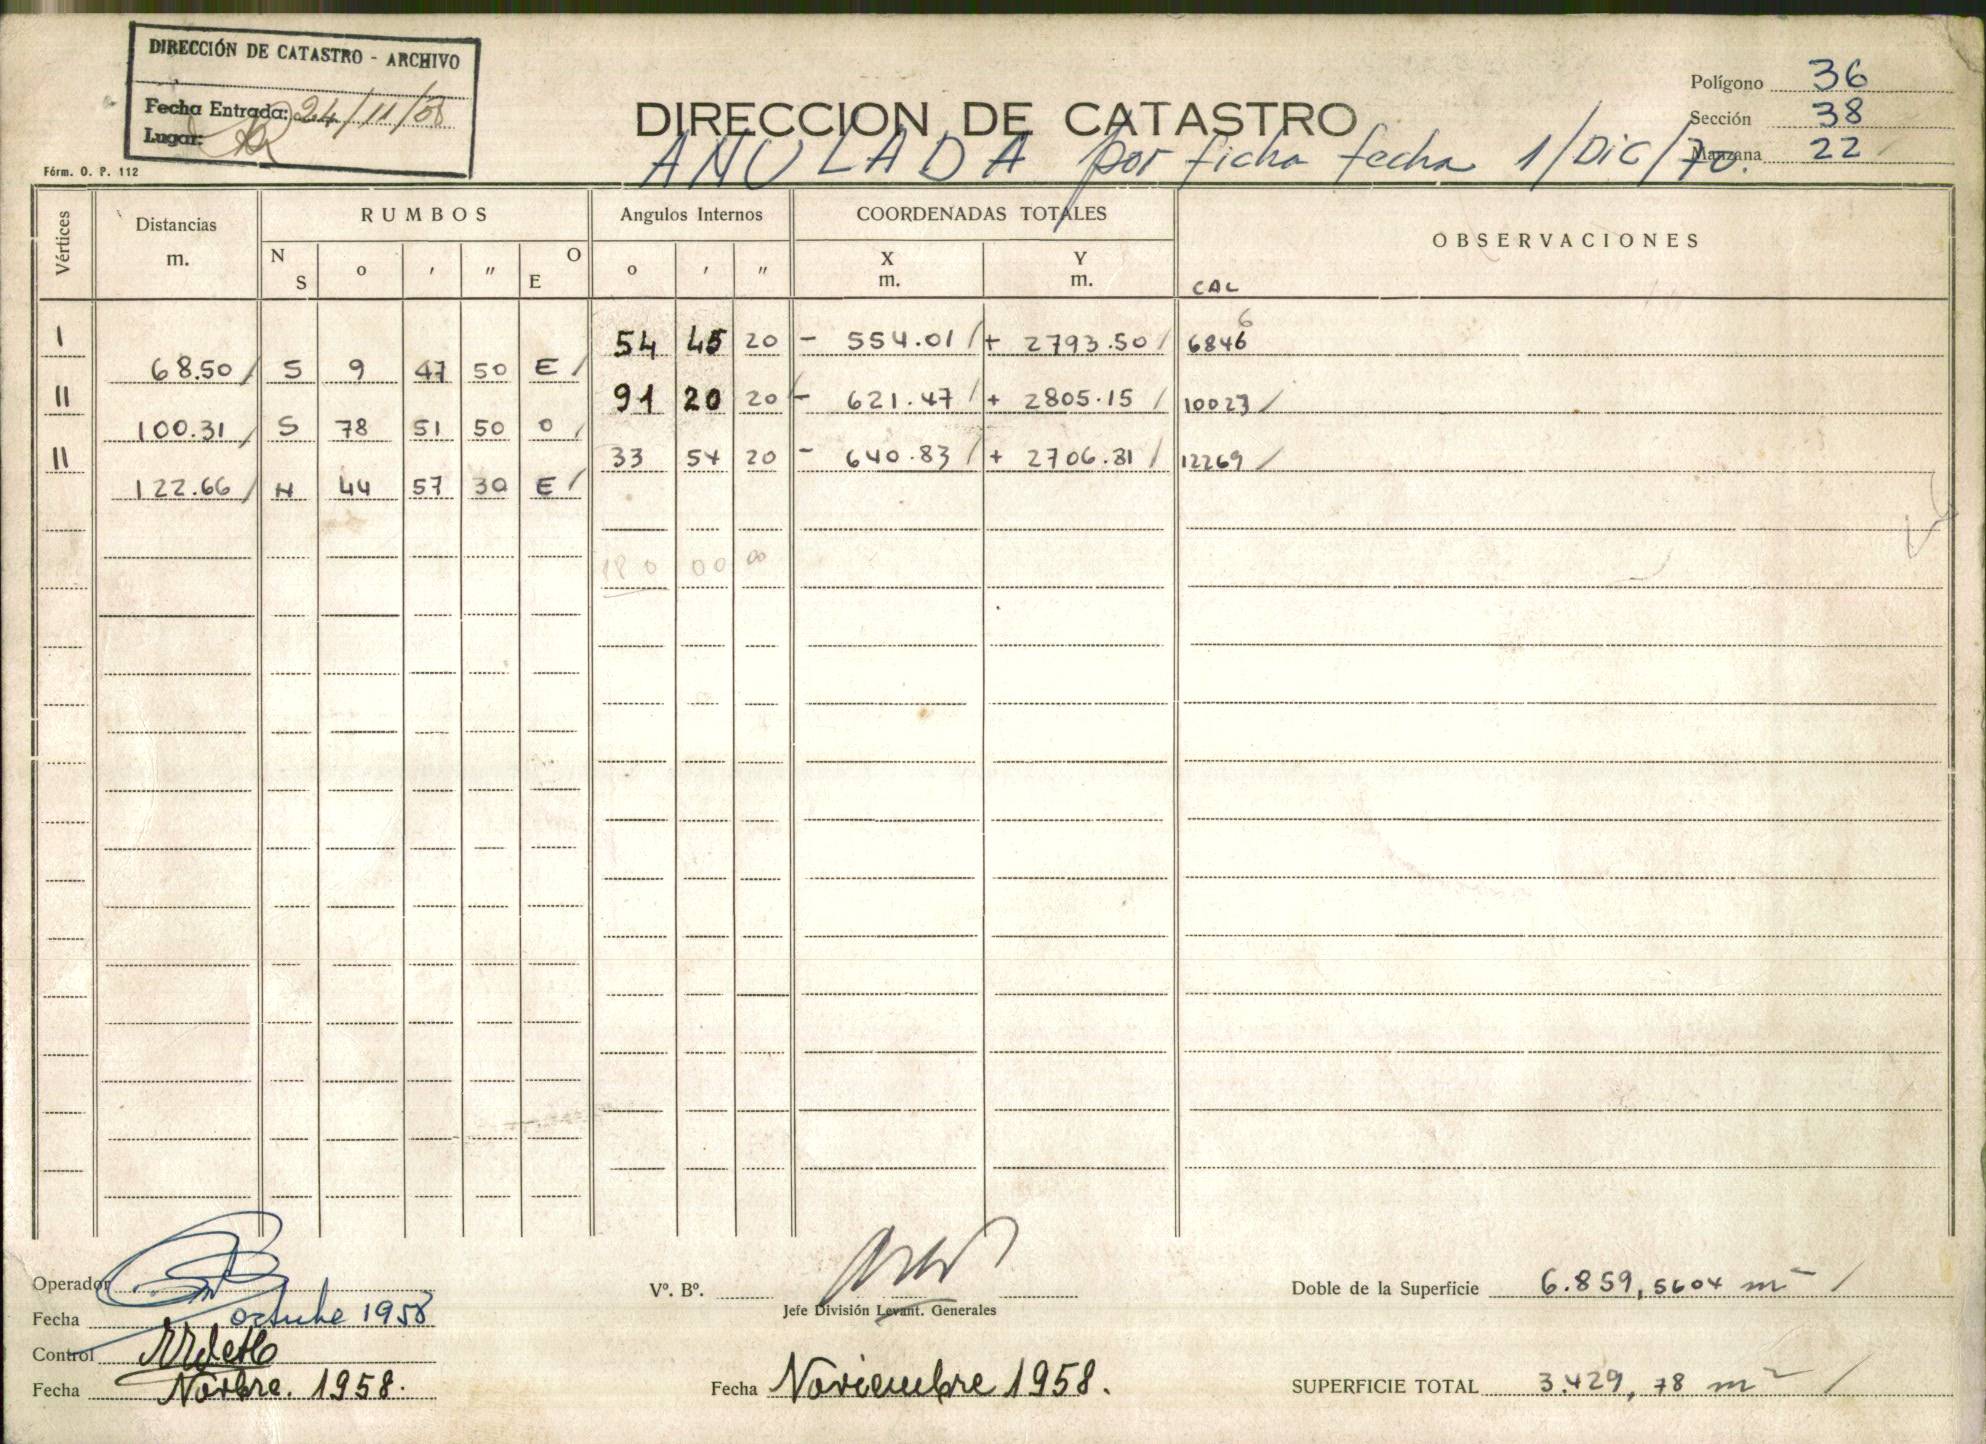 DIRECCIÓN DE CATASTRO - ARCHIVO
Fecha Entrada: 24/11/58
Lugar:
Fórm. O. P. 112
DIRECCION DE CATASTRO
ANULADA por ficha fecha 1/Dic/70.
Polígono 36
Sección 38
Manzana 22
Vértices Distancias m. RUMBOS Angulos Internos COORDENADAS TOTALES OBSERVACIONES
N S o ' " O E o ' " X m. Y m. CAL
I 54 45 20 - 554.01 / + 2793.50 / 6846 6
68.50 / S 9 47 50 E /
II 91 20 20 - 621.47 / + 2805.15 / 10023 /
100.31 / S 78 51 50 O /
II 33 54 20 - 640.83 / + 2706.81 / 12269 /
122.66 / N 44 57 30 E /
180 00 00
Operador
Fecha octubre 1958
Control
Fecha Novbre. 1958.
Vº. Bº.
Jefe División Levant. Generales
Fecha Noviembre 1958.
Doble de la Superficie 6.859,5604 m² /
SUPERFICIE TOTAL 3.429,78 m² /